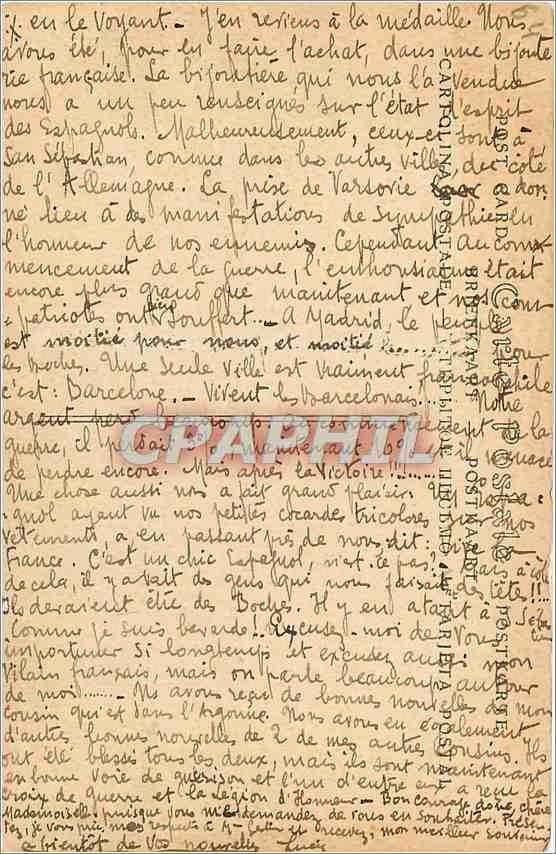 en le Voyant. - J'en reviens à la médaille. Nous
avons été, pour en faire l'achat, dans une bijoute
rie française. La bijoutière qui nous l'a vendue
nous a un peu renseignés sur l'état d'esprit
des Espagnols. Malheureusement, ceux-ci sont à
San Sébastian, comme dans les autres villes, du côté
de l'Allemagne. La prise de Varsovie don
né lieu à des manifestations de sympathie en
l'honneur de nos ennemis. Cependant au com
mencement de la guerre, l'enthousiasme était
encore plus grand que maintenant et nos com
patriotes ont souffert... - A Madrid, le peuple
est moitié pour nous, et moitié pour
les Boches. Une seule ville est vraiment francophile
c'est : Barcelone. - Vivent les Barcelonais... Notre
argent perd beaucoup. la
guerre, il perdait maintenant menace
de perdre encore. Mais après la Victoire !........
Une chose aussi nous a fait grand plaisir. Un
gnol ayant vu nos petites cocardes tricolores sur nos
vêtements, a, en passant près de nous, dit : Vive la
France. C'est un chic Espagnol, n'est-ce pas ? Mais à côté
de cela, il y avait des gens qui nous faisaient des têtes !!...
Ils devaient être des Boches. Il y en a tant à
Comme je suis bavarde !. Excusez-moi de Vous
importuner si longtemps et excusez aussi mon
vilain français, mais on parle beaucoup autour
de moi....... - Ns avons reçu de bonnes nouvelles de mon
cousin qui est dans l'Argonne. Nous avons eu également
d'autres bonnes nouvelles de 2 de mes autres cousins. Ils
ont été blessés tous les deux, mais ils sont maintenant
en bonne voie de guérison et l'un d'entre eux a reçu la
croix de guerre et la légion d'Honneur. - Bon courage donc, chère
Mademoiselle, puisque vous me demandez de vous en souhaiter. Présen
tez, je vous prie, mes respects à Mme et recevez, mon meilleur souvenir
à bientôt de Vos nouvelles
Carte Postale
POST CARD
BRIEFKAART
POSTKARTE
CARTOLINA POSTALE
TARJETA POSTAL
CPAPHIL